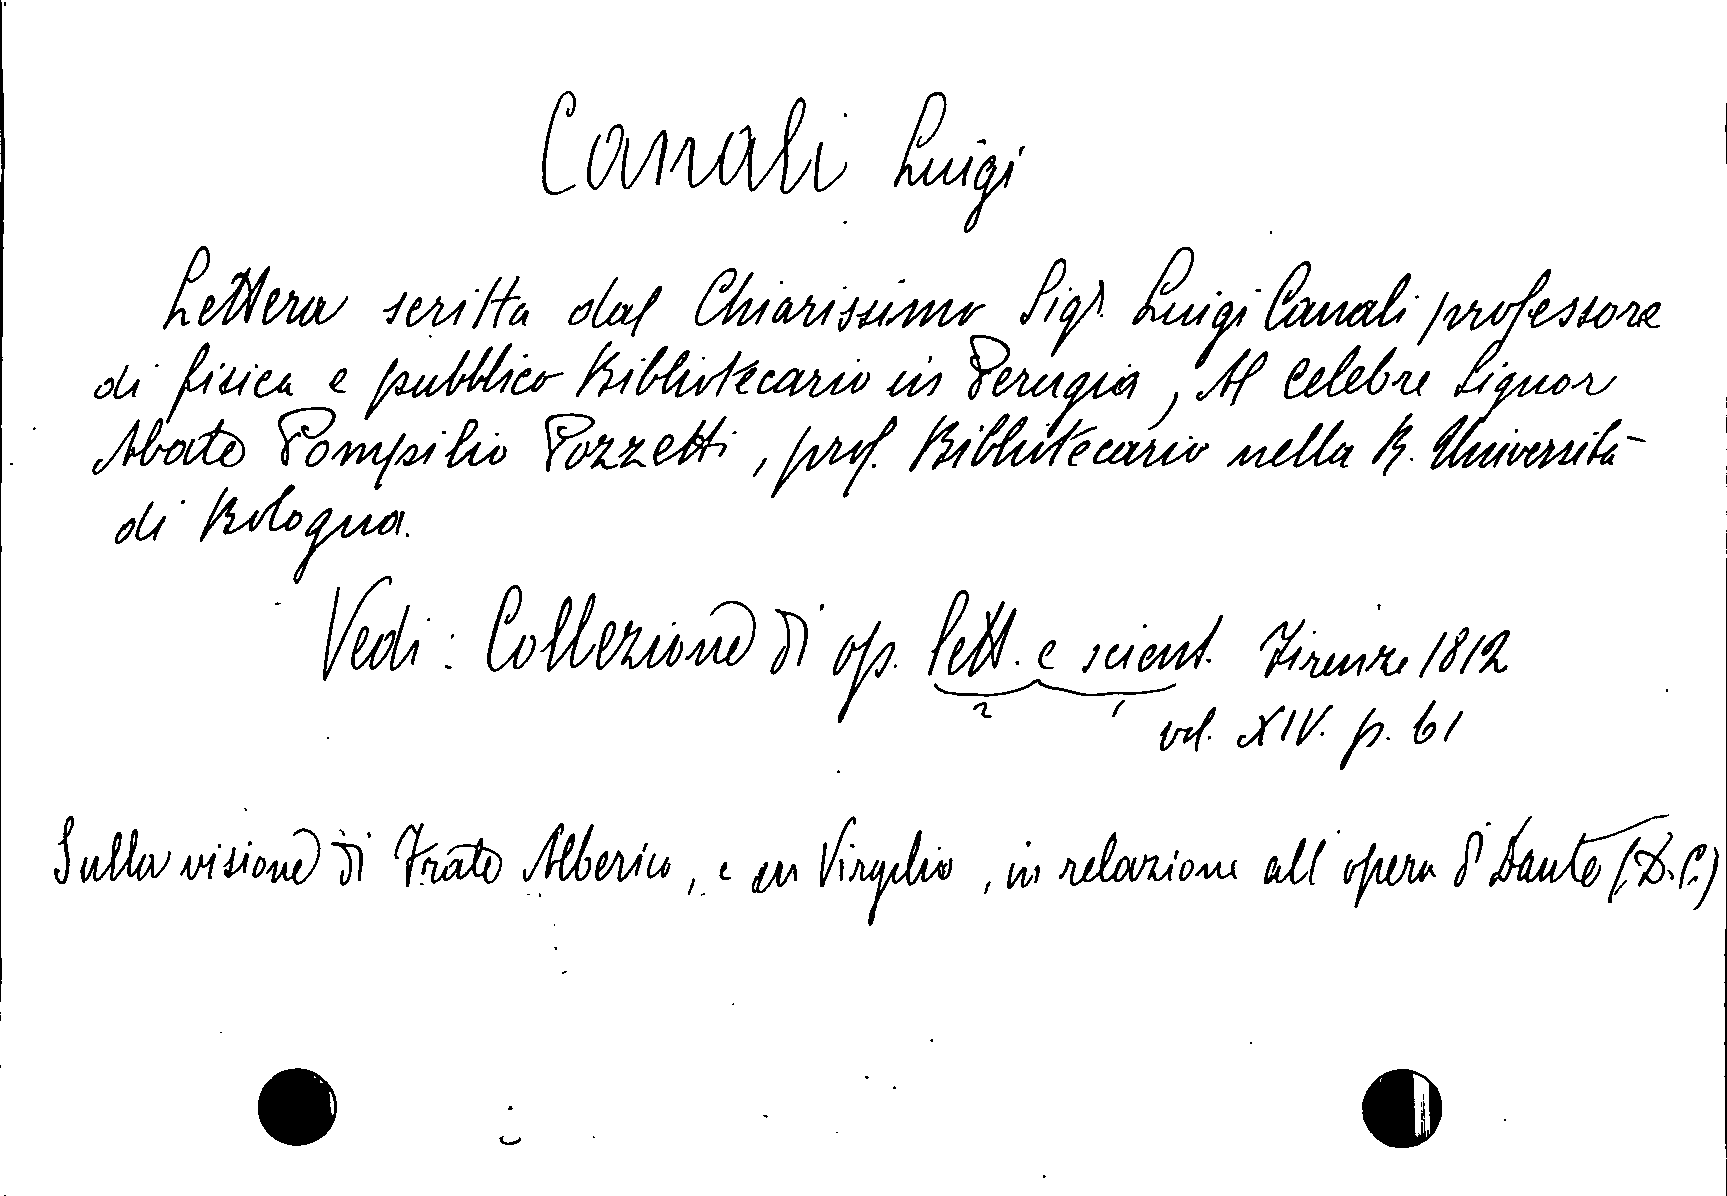 Canali Luigi
Lettera scritta dal Chiarissimo Sigr. Luigi Canali professore
di fisica e pubblico Bibliotecario in Perugia, Al celebre Signor
Abate Pompilio Pozzetti, prof. Bibliotecario nella R. Università
di Bologna.
Vedi: Collezione di op. lett. e scient. Firenze 1812
2 1
vol. XIV. p. 61
Sulla visione di Frate Alberico, e in Virgilio, in relazione all opera d Dante (D.C.)